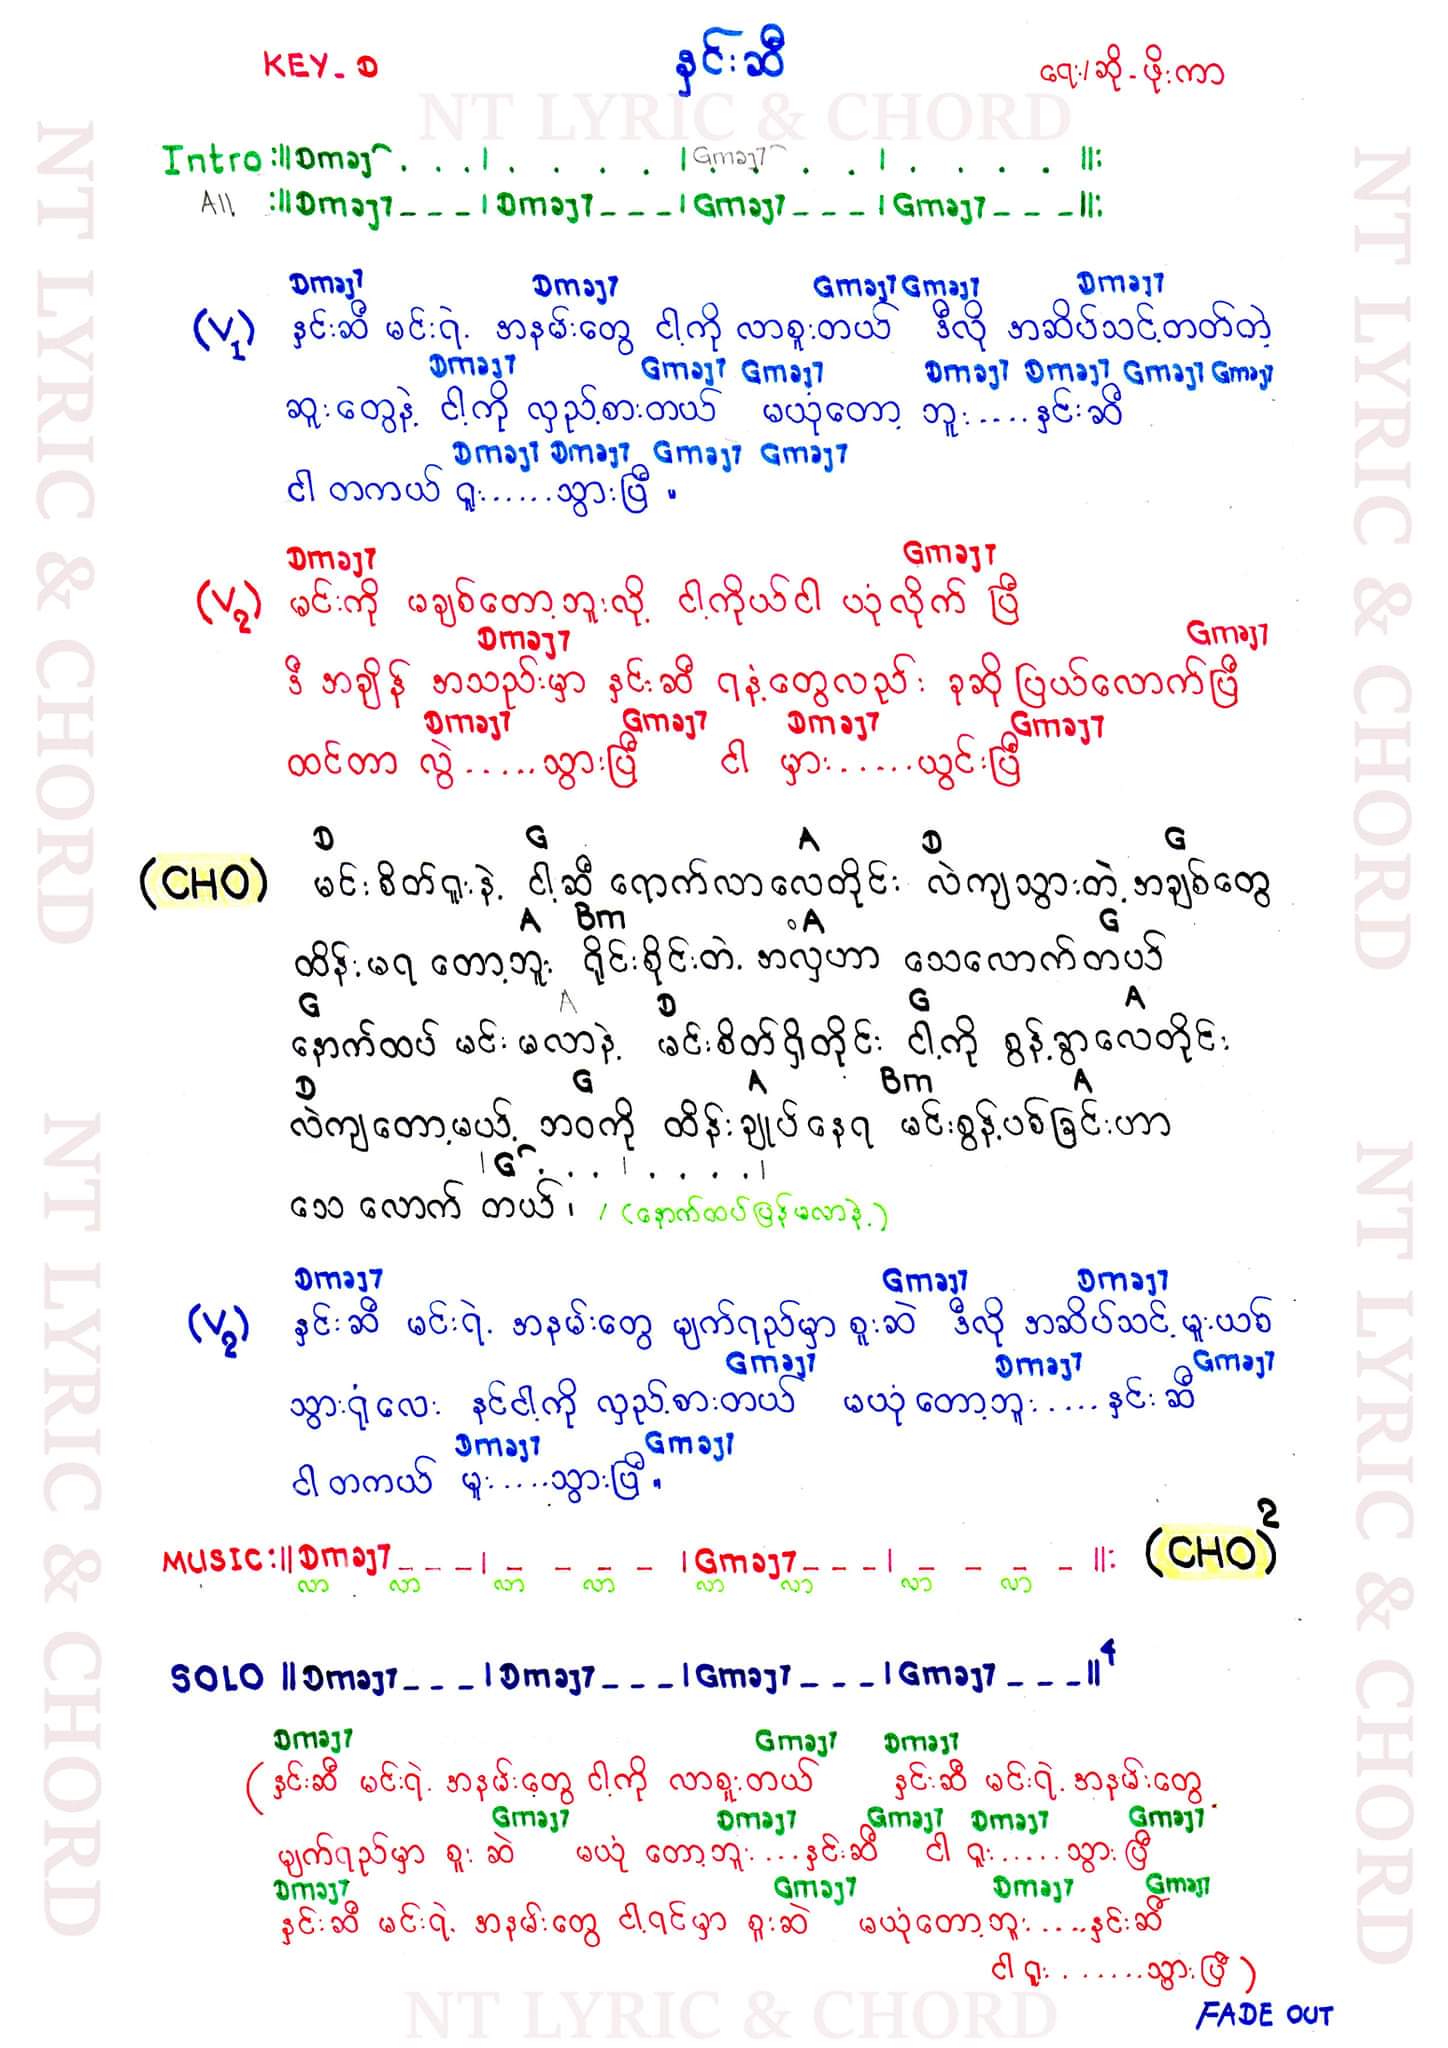 KEY_D နှင်းဆီ ရေး/ဆို - ဖိုးကာ
NT LYRIC & CHORD
Intro :||Dmaj7 . . . | . . . . | Gmaj7 . . . | . . . . ||:
All :||Dmaj7 _ _ _ | Dmaj7 _ _ _ | Gmaj7 _ _ _ | Gmaj7 _ _ _ ||:
Dmaj7 Dmaj7 Gmaj7 Gmaj7 Dmaj7
(V1) နှင်းဆီ မင်းရဲ့ အနမ်းတွေ ငါ့ကို လာစူးတယ် ဒီလို အဆိပ်သင့်တတ်တဲ့
Dmaj7 Gmaj7 Gmaj7 Dmaj7 Dmaj7 Gmaj7 Gmaj7
ဆူးတွေနဲ့ ငါ့ကို လှည့်စားတယ် မယုံတော့ ဘူး....နှင်းဆီ
Dmaj7 Dmaj7 Gmaj7 Gmaj7
ငါ တကယ် ရူး......သွားပြီ ။
Dmaj7 Gmaj7
(V2) မင်းကို မချစ်တော့ဘူးလို့ ငါ့ကိုယ်ငါ ယုံလိုက် ပြီ
Dmaj7 Gmaj7
ဒီ အချိန် အသည်းမှာ နှင်းဆီ ရနံ့တွေလည်း ခုဆို ပြယ်လောက်ပြီ
Dmaj7 Gmaj7 Dmaj7 Gmaj7
ထင်တာ လွဲ.....သွားပြီ ငါ မှား......ယွင်းပြီ
D G A D G
(CHO) မင်းစိတ်ရူးနဲ့ ငါ့ဆီ ရောက်လာလေတိုင်း လဲကျသွားတဲ့ အချစ်တွေ
A Bm A G
ထိန်းမရ တော့ဘူး ရိုင်းစိုင်းတဲ့ အလှဟာ သေလောက်တယ်
G A D G A
နောက်ထပ် မင်းမလာနဲ့ မင်းစိတ်ရှိတိုင်း ငါ့ကို စွန့်ခွာလေတိုင်း
D G A Bm A
လဲကျတော့မယ့် ဘဝကို ထိန်းချုပ်နေရ မင်းစွန့်ပစ်ခြင်းဟာ
|G . . . | . . . . |
သေ လောက် တယ်၊ / (နောက်ထပ်ပြန်မလာနဲ့)
Dmaj7 Gmaj7 Dmaj7
(V2) နှင်းဆီ မင်းရဲ့ အနမ်းတွေ မျက်ရည်မှာ စူးဆဲ ဒီလို အဆိပ်သင့် မူးယစ်
Gmaj7 Dmaj7 Gmaj7
သွားရုံလေး နင်ငါ့ကို လှည့်စားတယ် မယုံ တော့ဘူး.....နှင်းဆီ
Dmaj7 Gmaj7
ငါ တကယ် မူး.....သွားပြီ ။
MUSIC:||Dmaj7 _ _ _ | _ _ _ _ | Gmaj7 _ _ _ | _ _ _ _ ||: (CHO)2
လာ လာ လာ လာ လာ လာ လာ လာ
SOLO ||Dmaj7 _ _ _ | Dmaj7 _ _ _ | Gmaj7 _ _ _ | Gmaj7 _ _ _ ||4
Dmaj7 Gmaj7 Dmaj7
(နှင်းဆီ မင်းရဲ့ အနမ်းတွေ ငါ့ကို လာစူးတယ် နှင်းဆီ မင်းရဲ့ အနမ်းတွေ
Gmaj7 Dmaj7 Gmaj7 Dmaj7 Gmaj7
မျက်ရည်မှာ စူး ဆဲ မယုံ တော့ဘူး....နှင်းဆီ ငါ ရူး......သွား ပြီ
Dmaj7 Gmaj7 Dmaj7 Gmaj7
နှင်းဆီ မင်းရဲ့ အနမ်းတွေ ငါ့ရင်မှာ စူးဆဲ မယုံတော့ဘူး.....နှင်းဆီ
ငါ ရူး.......သွားပြီ)
NT LYRIC & CHORD
FADE OUT
NT LYRIC & CHORD
NT LYRIC & CHORD
NT LYRIC & CHORD
NT LYRIC & CHORD